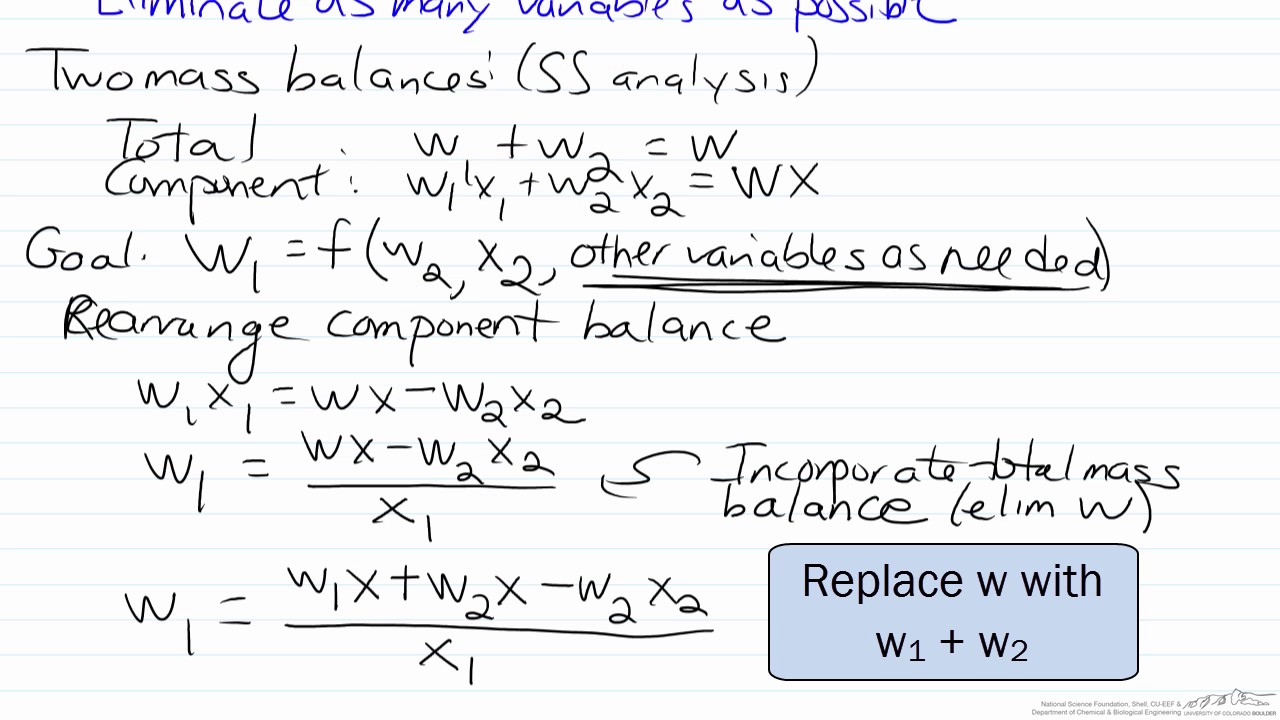 Eliminate as many variables as possible
Two mass balances: (SS analysis)
Total : w₁ + w₂ = w
Component : w₁x₁ + w₂x₂ = wx
Goal. w₁ = f(w₂, x₂, other variables as needed)
Rearrange component balance
w₁x₁ = wx − w₂x₂
w₁ = (wx − w₂x₂) / x₁
Incorporate total mass
balance (elim w)
w₁ = (w₁x + w₂x − w₂x₂) / x₁
Replace w with
w₁ + w₂
National Science Foundation, Shell, CU-EEF &
Department of Chemical & Biological Engineering
UNIVERSITY OF COLORADO BOULDER